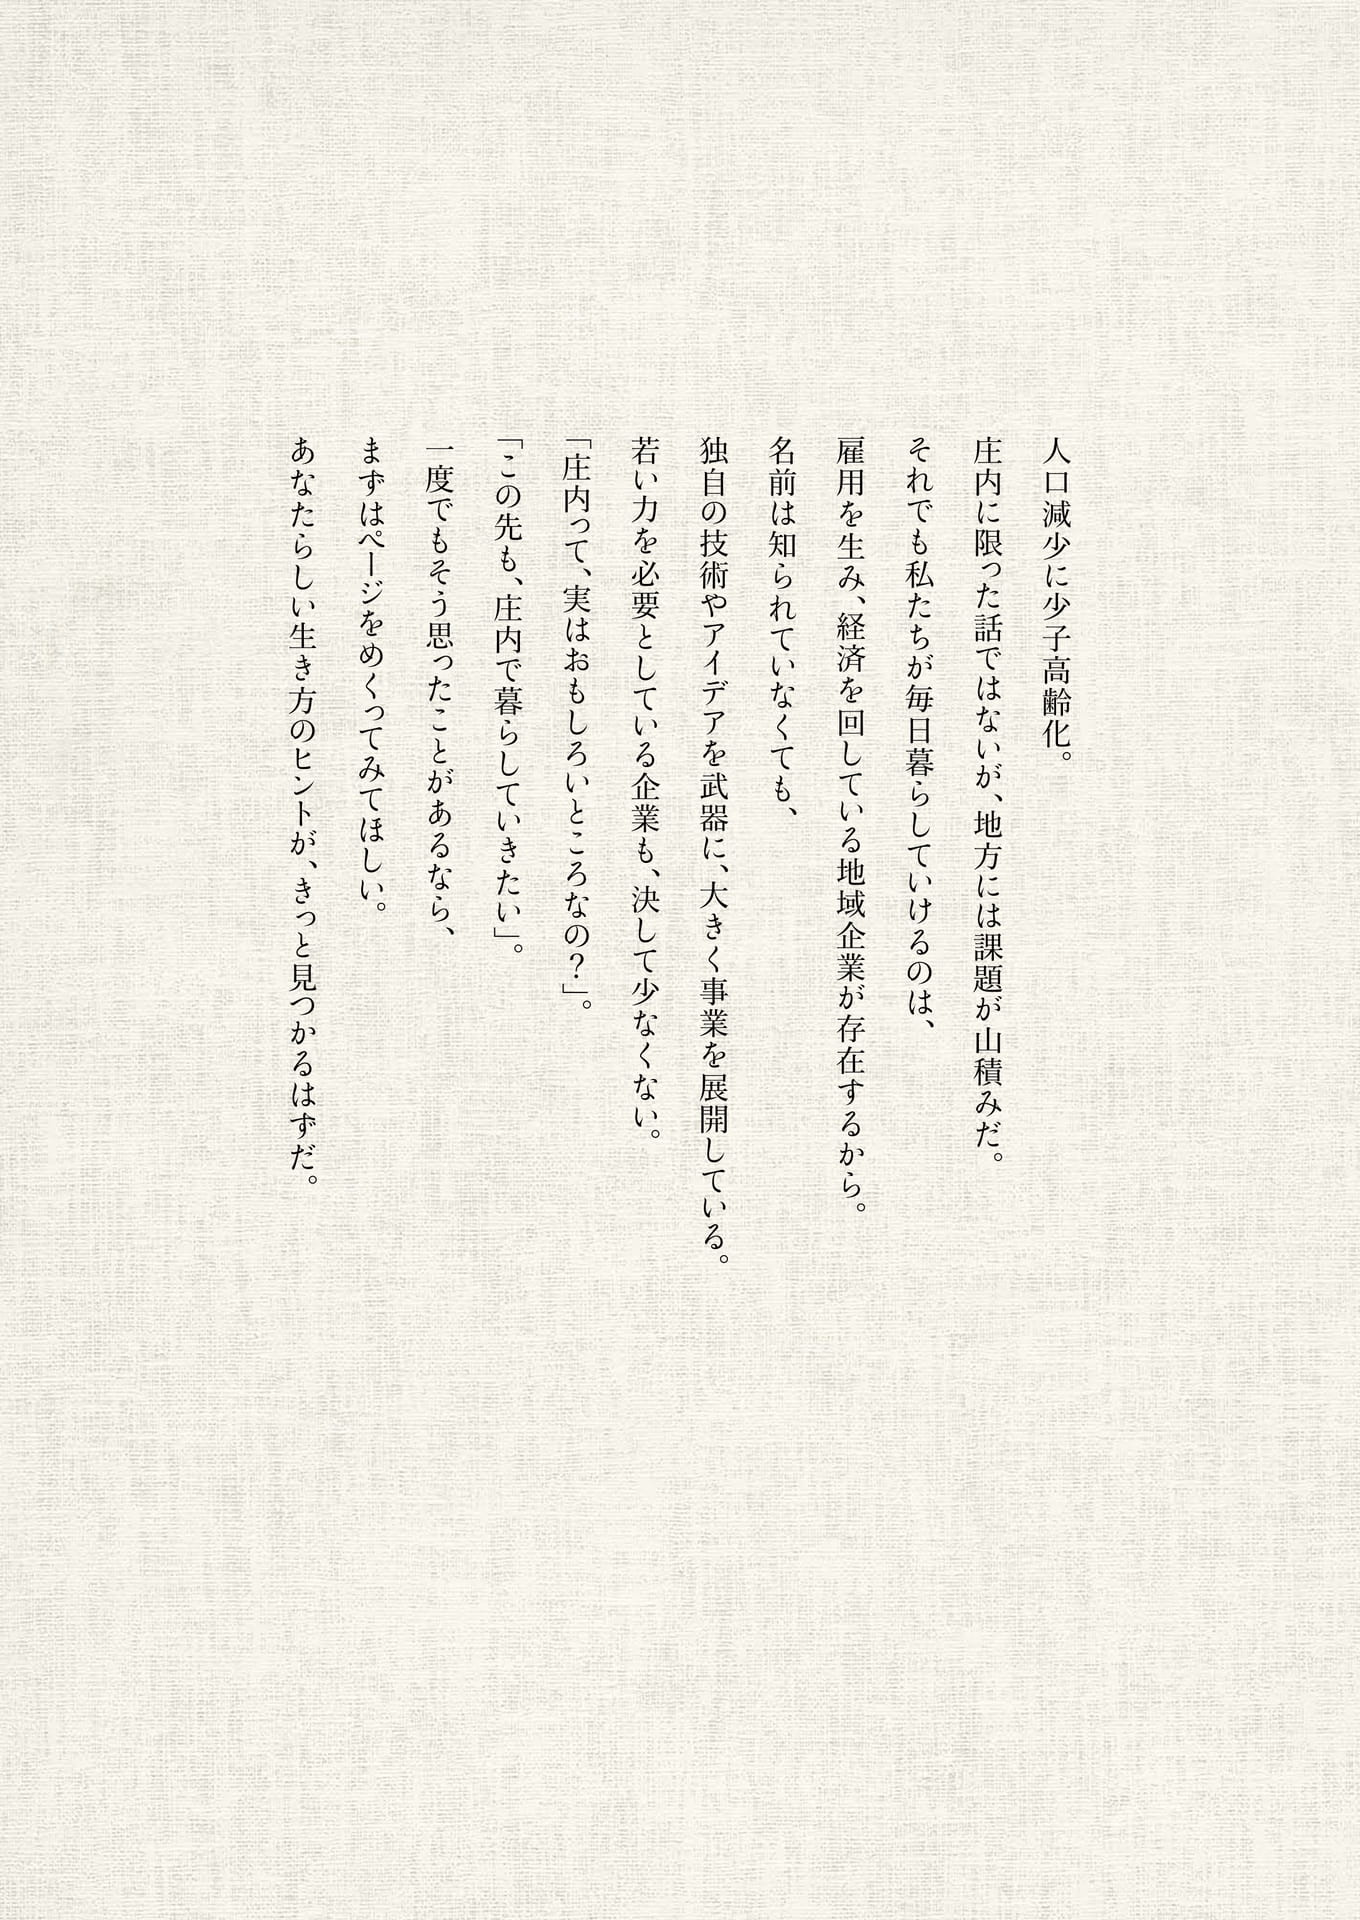 人口減少に少子高齢化。
庄内に限った話ではないが、地方には課題が山積みだ。
それでも私たちが毎日暮らしていけるのは、
雇用を生み、経済を回している地域企業が存在するから。
名前は知られていなくても、
独自の技術やアイデアを武器に、大きく事業を展開している。
若い力を必要としている企業も、決して少なくない。
「庄内って、実はおもしろいところなの？」。
「この先も、庄内で暮らしていきたい」。
一度でもそう思ったことがあるなら、
まずはページをめくってみてほしい。
あなたらしい生き方のヒントが、きっと見つかるはずだ。